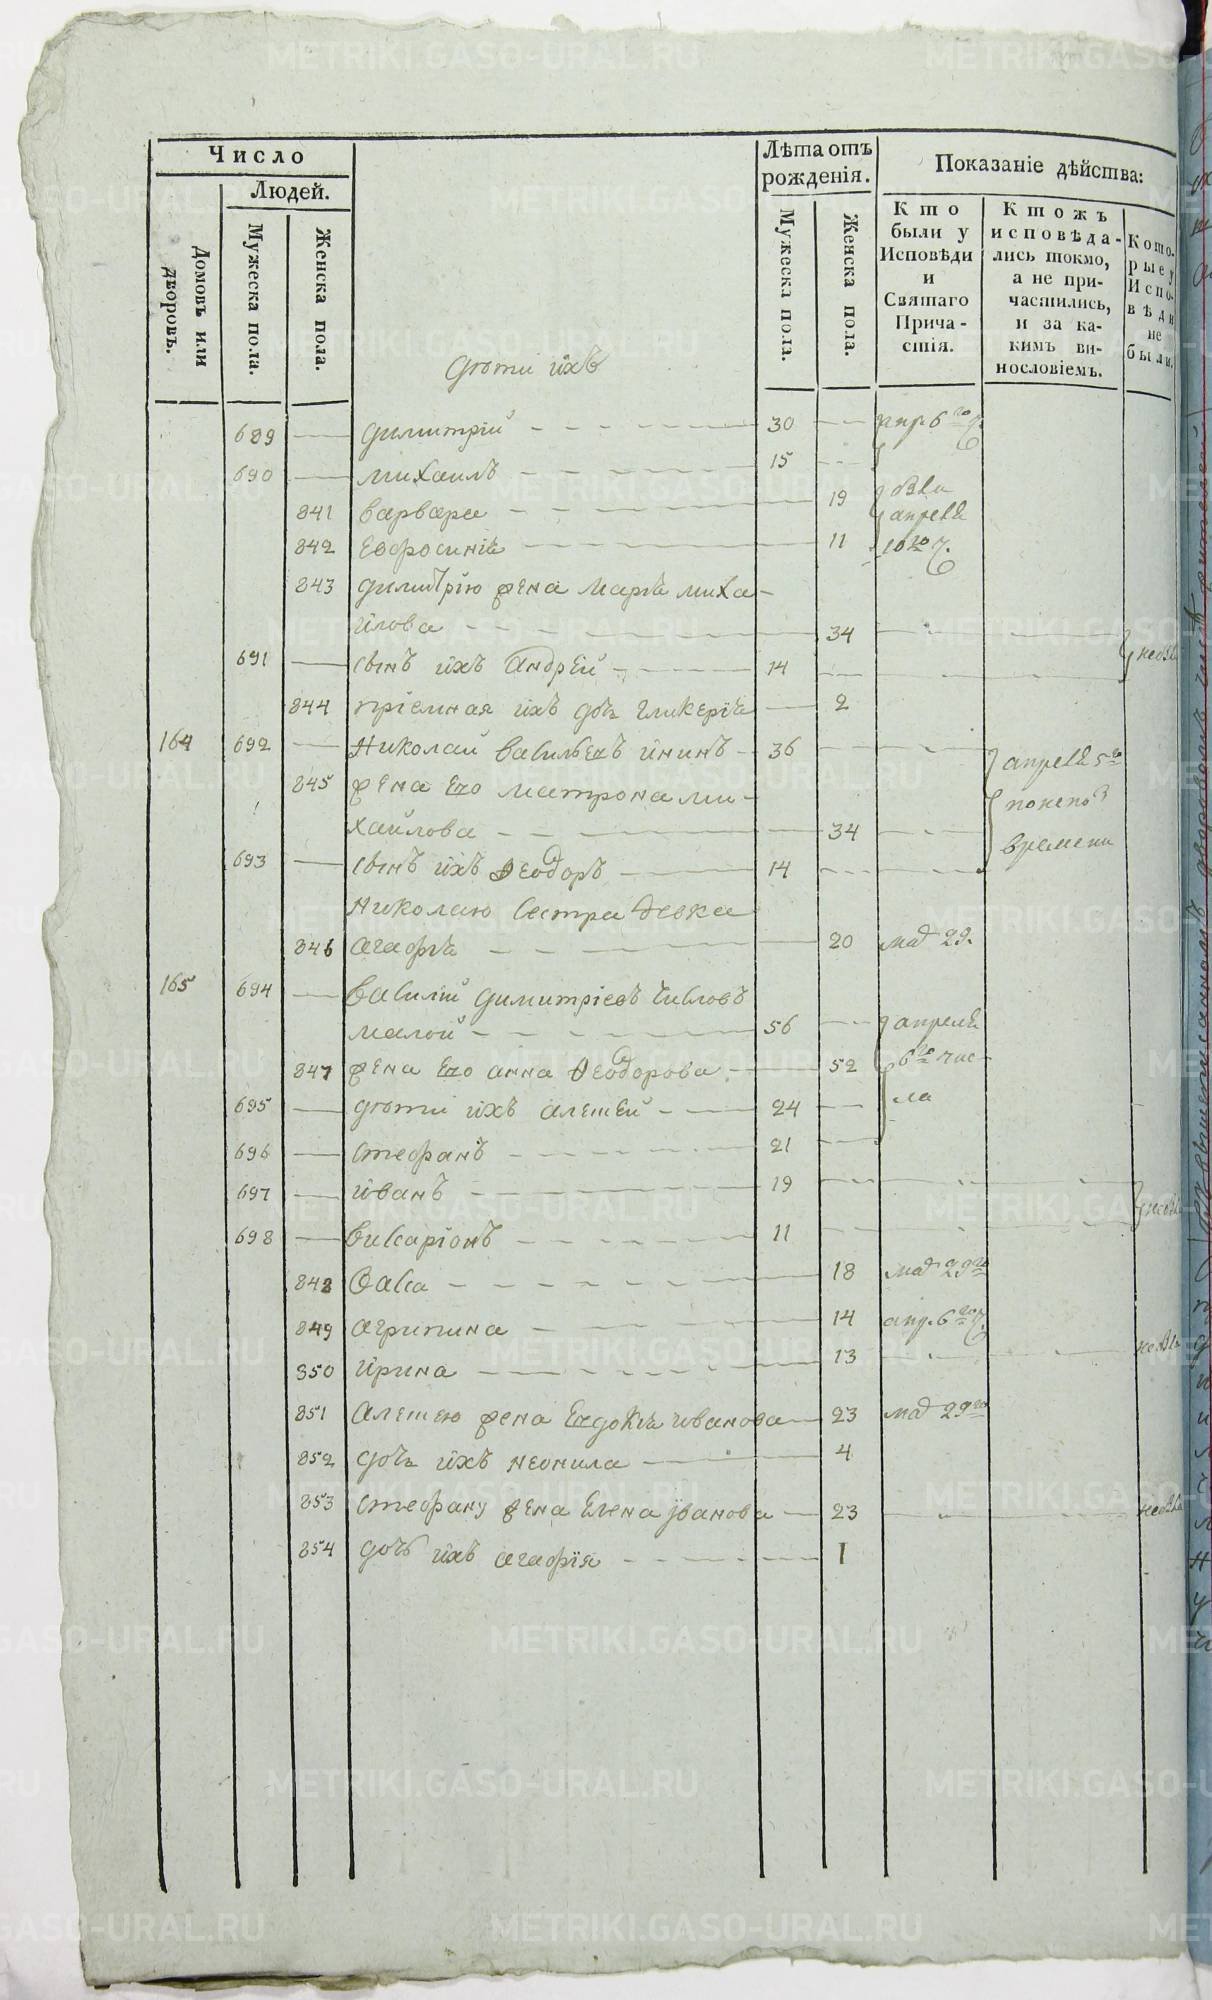 Число
Людей.
Домовъ или дворовъ.
Мужеска пола.
Женска пола.
Лѣта отъ рожденія.
Мужеска пола.
Женска пола.
Показаніе дѣйства:
Кто были у Исповѣди и Святаго Причастія.
Ктожъ исповѣдались токмо, а не причастились, и за какимъ винословіемъ.
Которые у Исповѣди не были.
дѣти ихъ
689 димитрій 30 апр. 6го ч.
690 михаилъ 15
841 варвара 19
апреля
842 евфросинія 11 10го ч.
843 димитрію жена марѳа миха-
илова 34
691 сынъ ихъ андрей 14
844 пріемная ихъ дочь гликерія 2
164 692 николай васильевъ 36 апреля 5го
845 жена его матрона ми-
хайлова 34 времени
693 сынъ ихъ ѳеодоръ 14
николаю сестра девка
846 агафія 20 маія 29.
165 694 василий димитріевъ
малой 56 апреля
847 жена его анна ѳеодорова 52 6го чис-
695 дѣти ихъ алексей 24 ла
696 стефанъ 21
697 иванъ 19
698 висаріонъ 11
848 васса 18 маія 29го
849 агрипина 14 апр. 6го ч.
850 ирина 13
851 алексею жена евдокія иванова 23 маія 29го
852 дочь ихъ неонила 4
853 стефану жена елена иванова 23
854 дочь ихъ агафія 1
METRIKI.GASO-URAL.RU